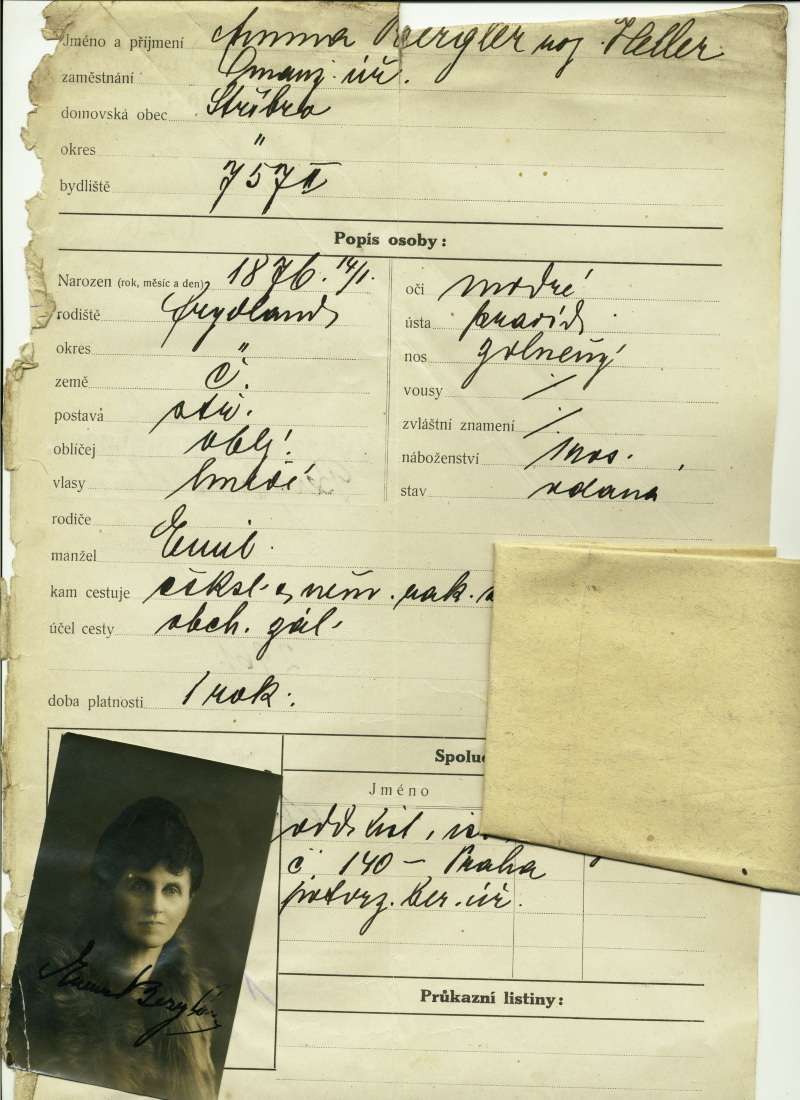 Jméno a příjmení Bergler roz. Heller
zaměstnání úř.
domovská obec Stříbro
okres "
bydliště 757 II
Popis osoby:
Narozen (rok, měsíc a den) 1876. 14/1.
rodiště Frydland
okres "
země č.
postavá stř.
oblíčej obl.
vlasy hnědé
rodiče
manžel Emil
kam cestuje čsksl. a něm. rak.
účel cesty obch. zál.
doba platnosti 1 rok.
oči modré
ústa pravid.
nos
vousy /
zvláštní znamení /
náboženství mos.
stav vdaná
Spoluc
Jméno
odd. list,
č. 140 – Praha
potvrz. ber. úř.
Průkazní listiny:
Bergler